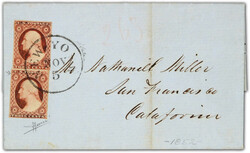 NEW YO
NOV
5
Mr Nathaniel Miller
San Francisco
California
1852